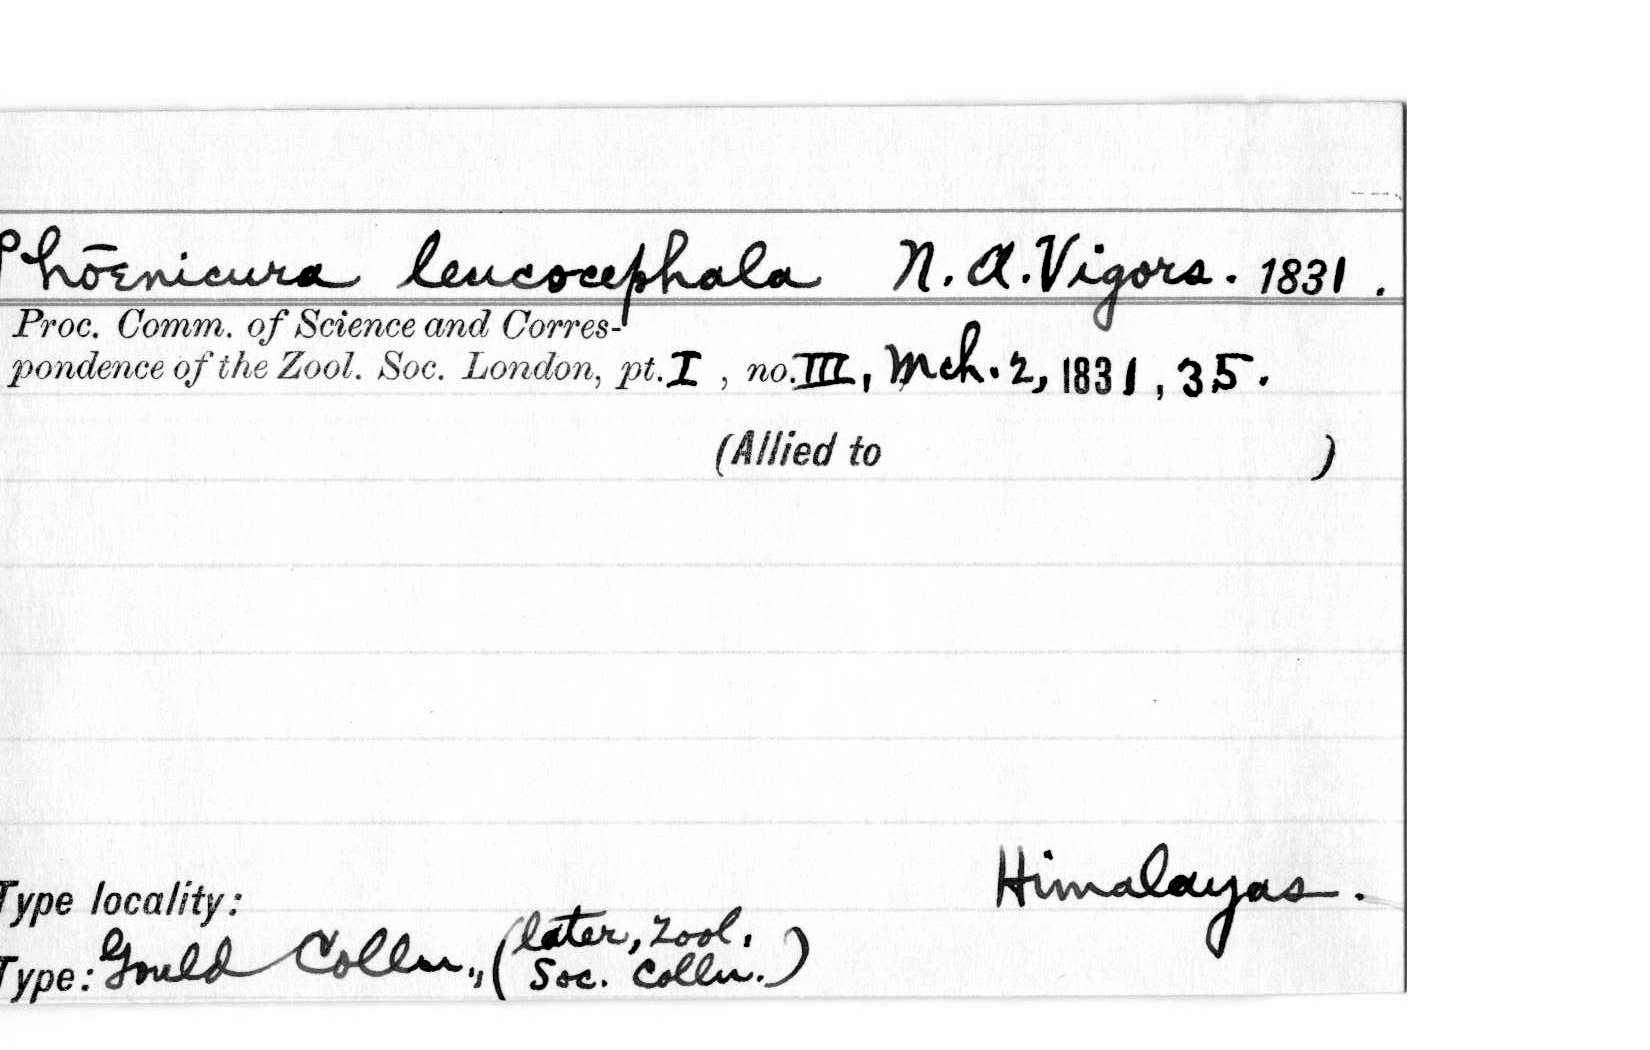 Phōenicura leucocephala N. A. Vigors. 1831.
Proc. Comm. of Science and Corres-
pondence of the Zool. Soc. London, pt. I, no. III, Mch. 2, 1831, 35.
(Allied to )
Himalayas.
Type locality:
Type: Gould Colln., (later, Zool.
Soc. Colln.)